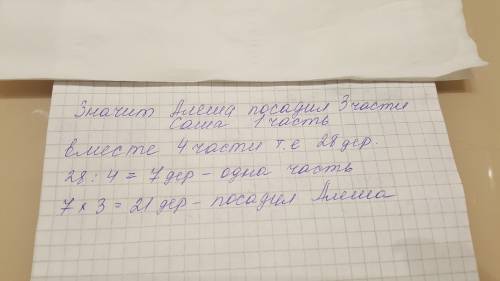 Значит Алеша посадил 3 части
Саша 1 часть
Вместе 4 части т.е 28 дер.
28 : 4 = 7 дер - одна часть
7 х 3 = 21 дер - посадил Алеша